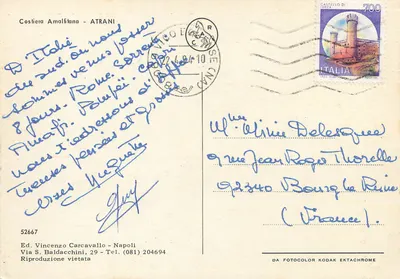 Costiera Amalfitana - ATRANI
D'Italie
du sud. où nous
sommes venus passer
8 jours. Rome. Sorrente
Amalfi. Pompéi. Capri
nous t'adressons aff
pensées et gros
Guy
52667
Ed. Vincenzo Carcavallo - Napoli
Via S. Baldacchini, 29 - Tel. (081) 204694
Riproduzione vietata
700
ITALIA
Mme Minie Delecque
9 rue Jean Roger Thorelle
92340 Bourg la Reine
(France)
DA FOTOCOLOR KODAK EKTACHROME